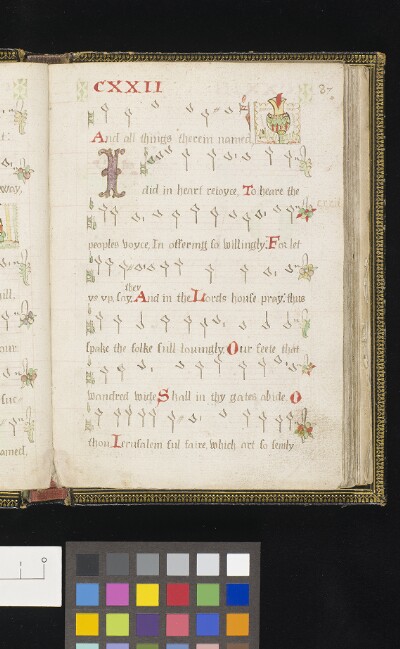 CXXII
87
And all things therein named
I did in heart reioyce, To heare the
peoples voyce, In offering so willingly. For let
vs vp, say they, And in the Lords house pray: thus
spake the folke full louingly. Our feete that
wandred wide, Shall in thy gates abide. O
thou Ierusalem ful faire, which art so seemly